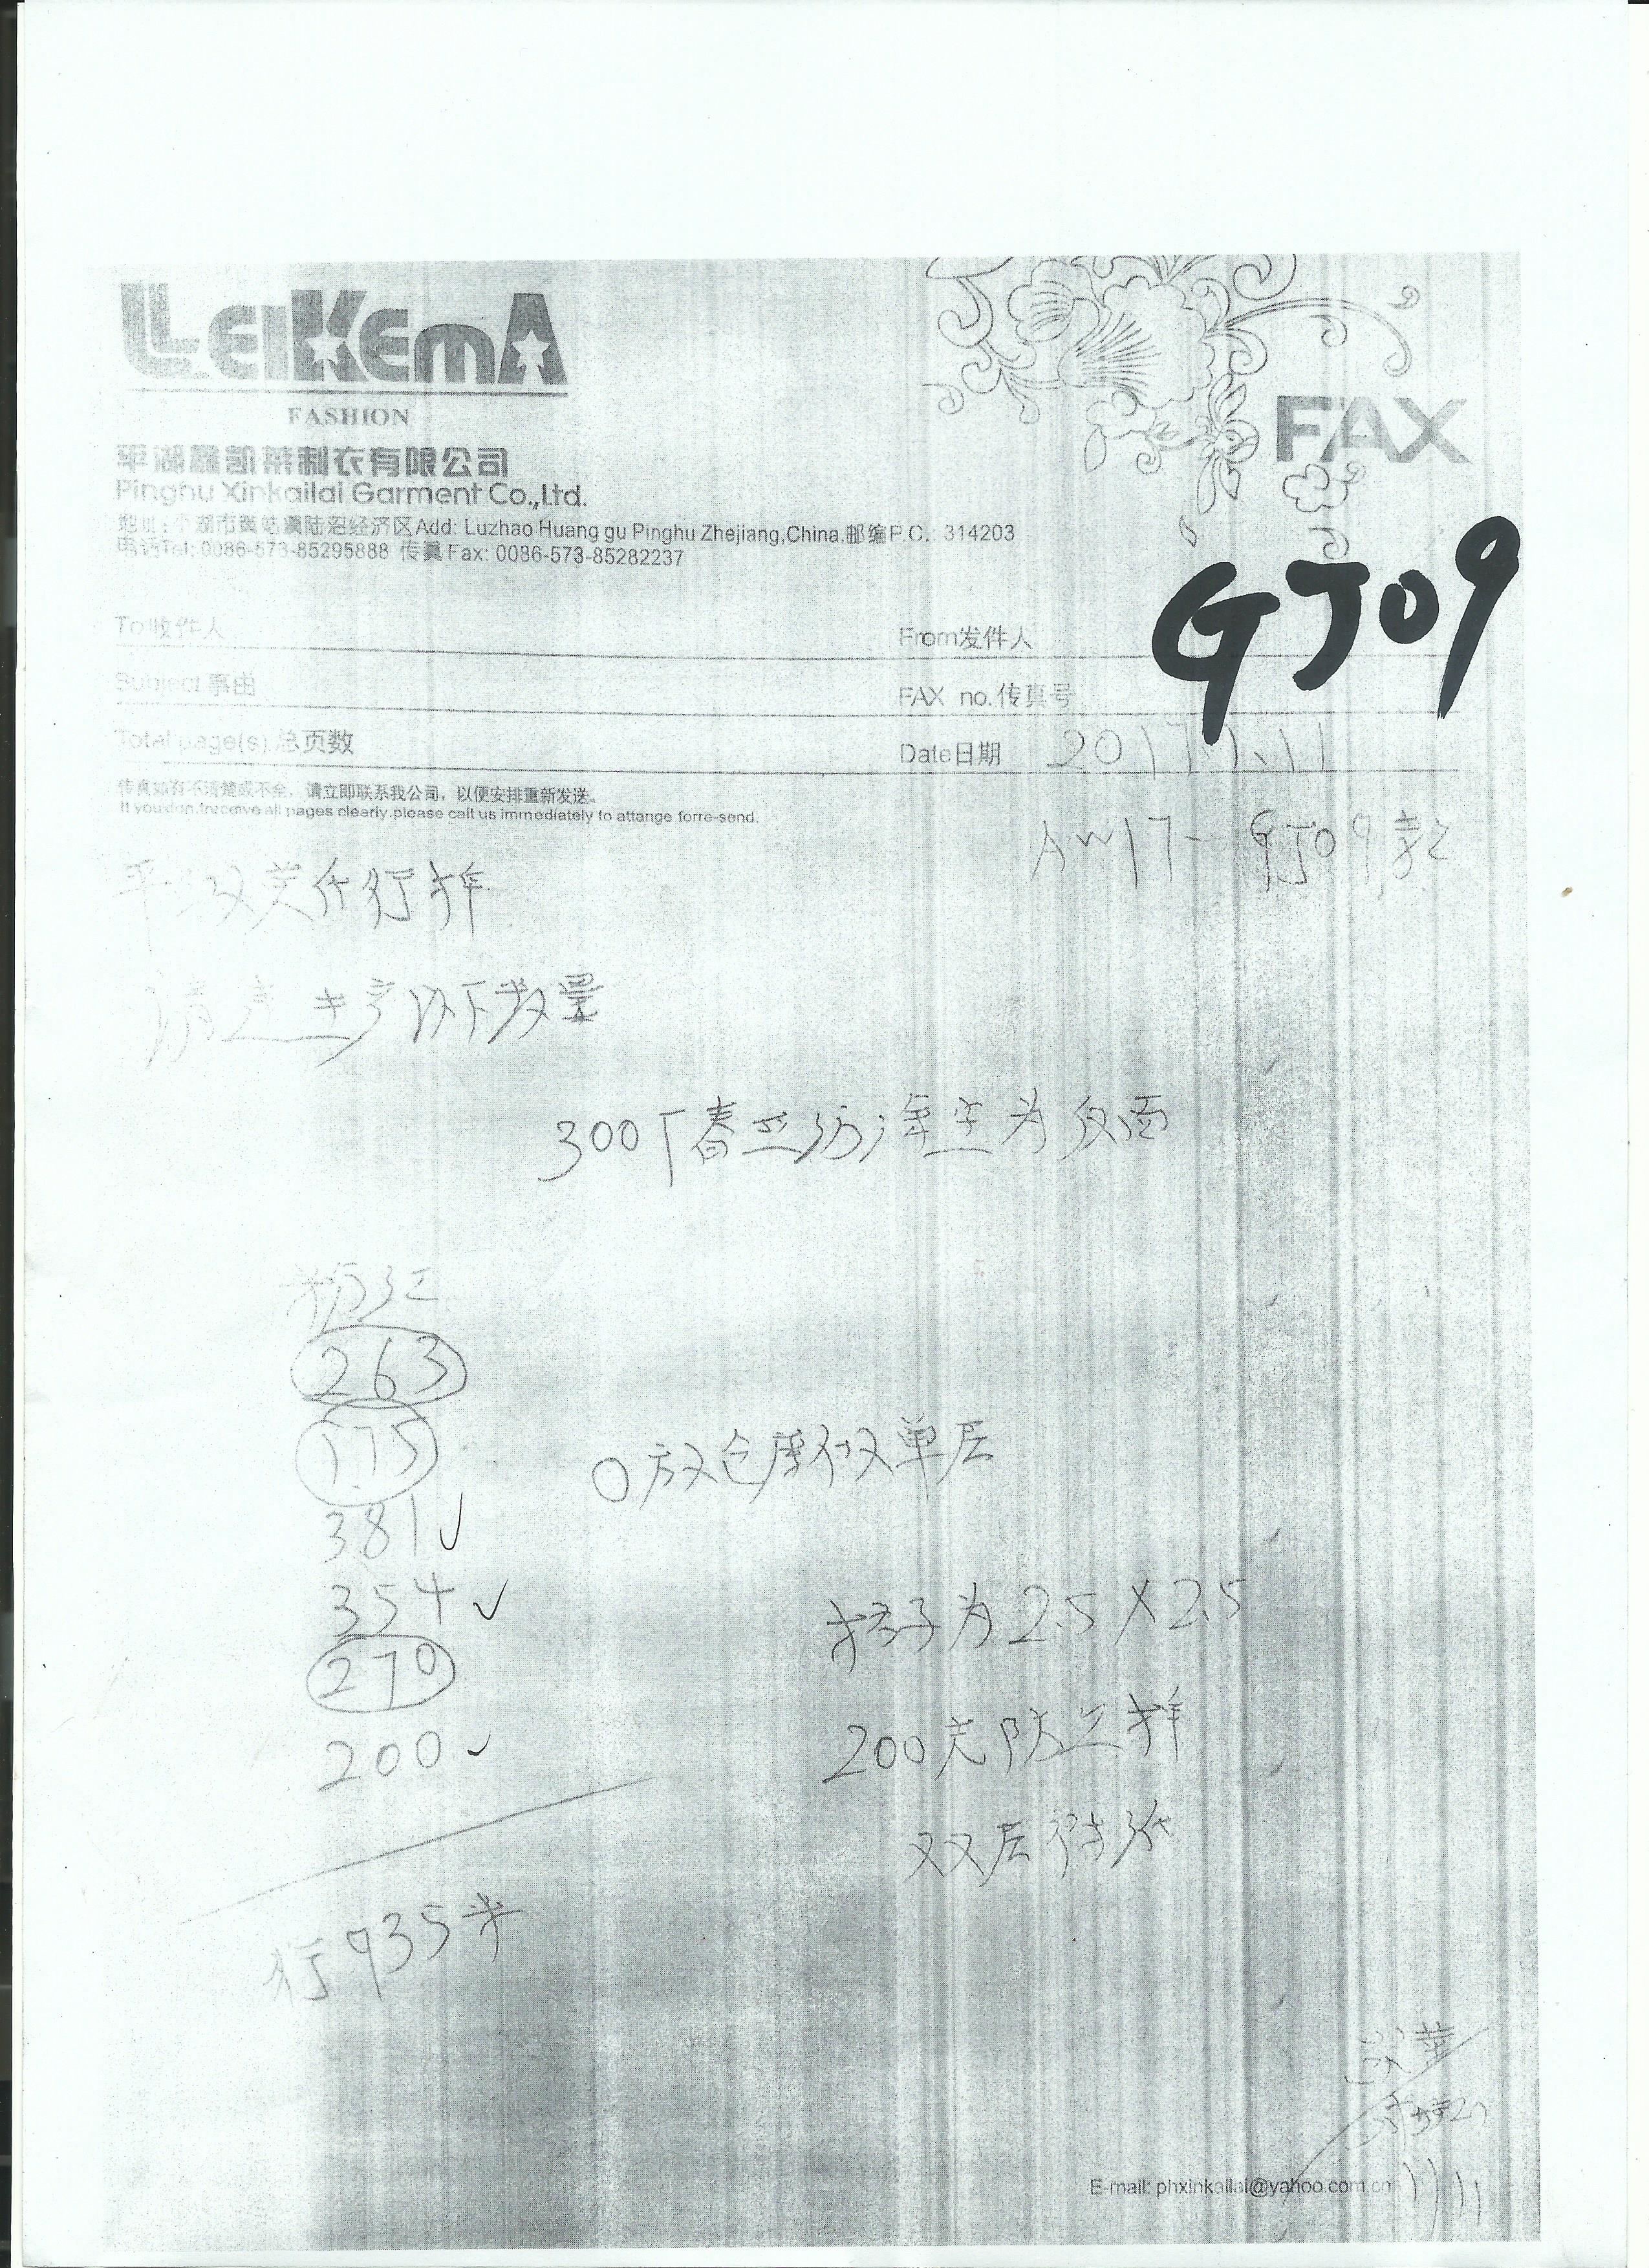 LEIKEMA
FASHION
FAX
平湖鑫凯莱制衣有限公司
Pinghu Xinkailai Garment Co.,Ltd.
地址:平湖市黄姑镇陆沼经济区Add: Luzhao Huang gu Pinghu Zhejiang,China.邮编P.C.: 314203
电话Tel: 0086-573-85295888 传真Fax: 0086-573-85282237
GJ09
To收件人
From发件人
Subject 事由
FAX no.传真号
Total page(s) 总页数
Date日期 2017.1.11
传真如有不清楚或不全,请立即联系我公司,以便安排重新发送。
If you don,treceive all pages clearly.please call us immediately to attange forre-send.
AW17-GJ09款
平湖
请 生产以下数量
300T春亚纺 为反面
263
175
381✓
354✓
270
200✓
O放仓库 单层
格子为2.5×2.5
200克
双层
行935米
E-mail: phxinkailai@yahoo.com.cn